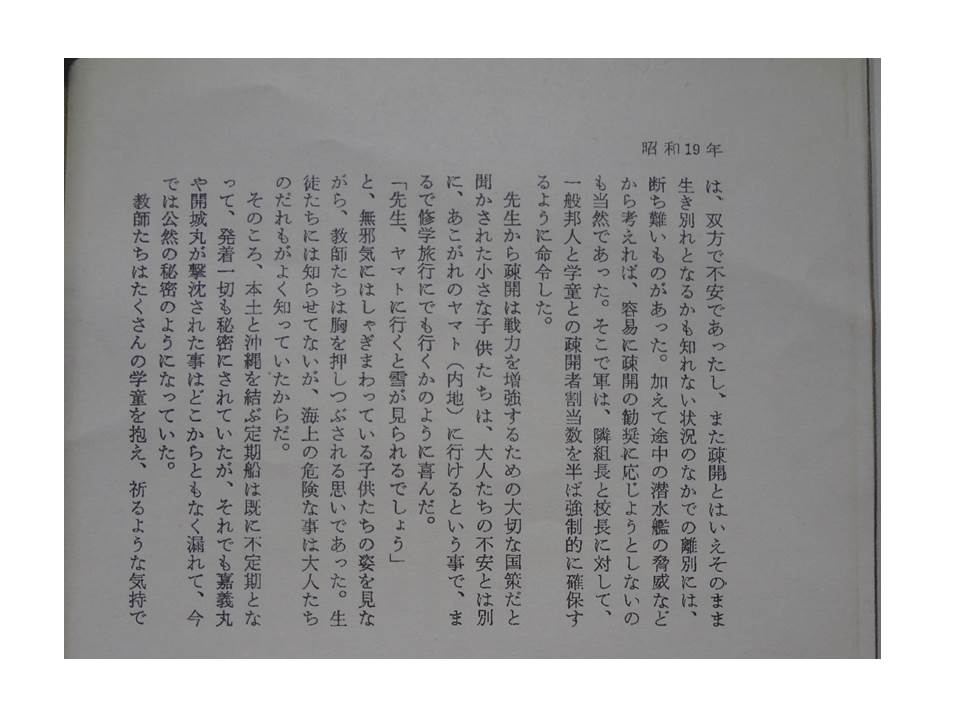 昭和19年
は、双方で不安であったし、また疎開とはいえそのまま
生き別れとなるかも知れない状況のなかでの離別には、
断ち難いものがあった。加えて途中の潜水艦の脅威など
から考えれば、容易に疎開の勧奨に応じようとしないの
も当然であった。そこで軍は、隣組長と校長に対して、
一般邦人と学童との疎開者割当数を半ば強制的に確保す
るように命令した。
先生から疎開は戦力を増強するための大切な国策だと
聞かされた小さな子供たちは、大人たちの不安とは別
に、あこがれのヤマト（内地）に行けるという事で、ま
るで修学旅行にでも行くかのように喜んだ。
「先生、ヤマトに行くと雪が見られるでしょう」
と、無邪気にはしゃぎまわっている子供たちの姿を見な
がら、教師たちは胸を押しつぶされる思いであった。生
徒たちには知らせてないが、海上の危険な事は大人たち
のだれもがよく知っていたからだ。
そのころ、本土と沖縄を結ぶ定期船は既に不定期とな
って、発着一切も秘密にされていたが、それでも嘉義丸
や開城丸が撃沈された事はどこからともなく漏れて、今
では公然の秘密のようになっていた。
教師たちはたくさんの学童を抱え、祈るような気持で